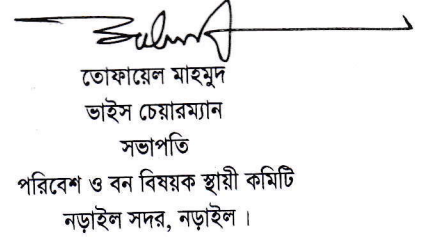 তোফায়েল মাহমুদ
ভাইস চেয়ারম্যান
সভাপতি
পরিবেশ ও বন বিষয়ক স্থায়ী কমিটি
নড়াইল সদর, নড়াইল ।